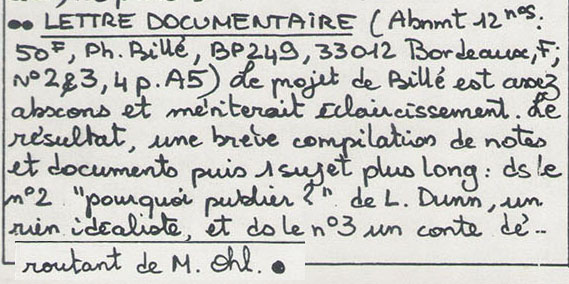 •• LETTRE DOCUMENTAIRE (Abnmt 12 nos:
50F, Ph. Billé, BP249, 33012 Bordeaux, F;
N° 2&3, 4 p. A5) Le projet de Billé est assez
abscons et mériterait éclaircissement. Le
résultat, une brève compilation de notes
et documents puis 1 sujet plus long : ds le
n°2 "pourquoi publier ?" de L. Dunn, un
rien idéaliste, et ds le n°3 un conte dé--
routant de M. Ohl. •